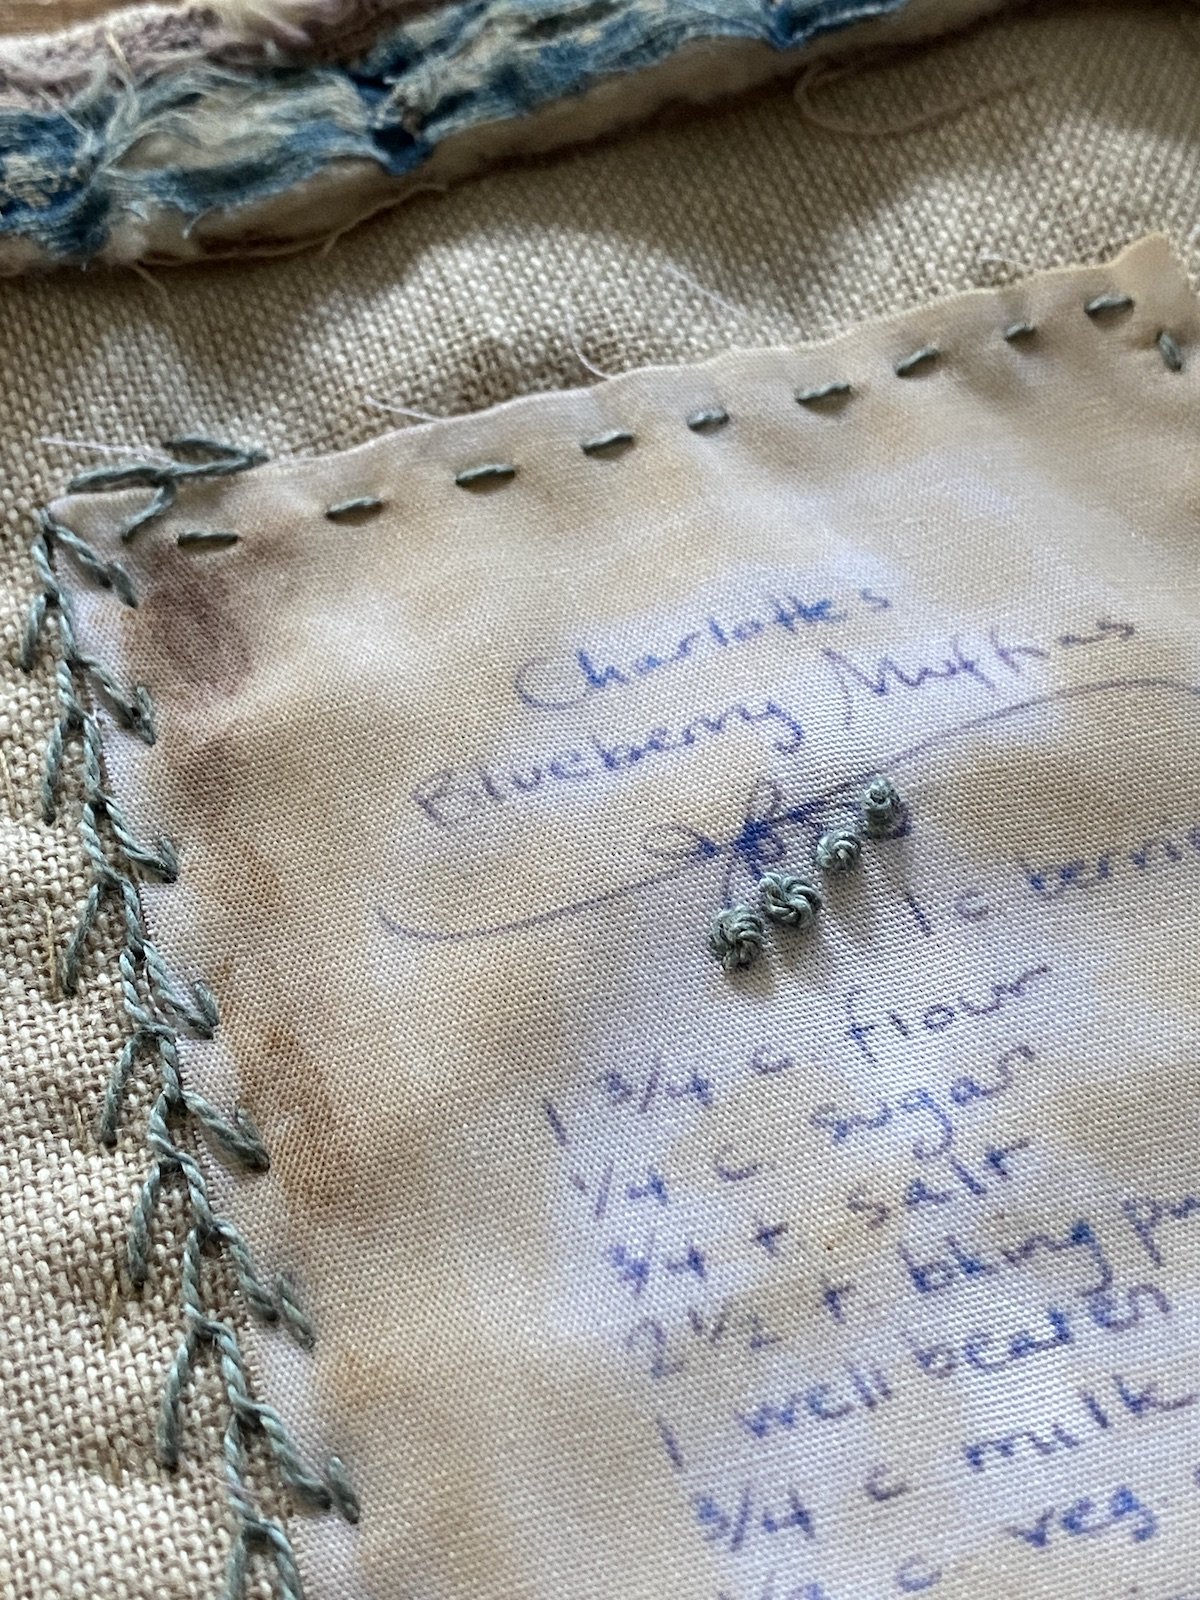 Charlottes
Blueberry Muffins
1 c berri
1 3/4 c flour
1/4 c sugar
3/4 t salt
2 1/2 t bking
1 well beaten
3/4 c milk
c veg